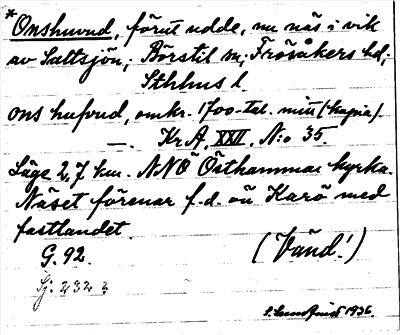 *Onshuvud, förut udde, nu näs i vik
av Saltsjön; Börstil sn; Frösåkers hd;
Sthlms l.
ons hufvud, omkr. 1700-tal. mitt (kopia).
—. Kr A, XXII, N:o 35.
Läge 2,7 km. NNO Östhammar kyrka.
Näset förenar f.d. ön Karö med
fastlandet.
G. 92. (Vänd!)
Sj: 232
1936.